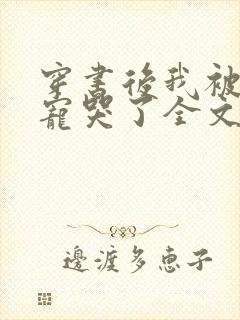 穿書後我被
寵哭了全文
邊渡多惠子